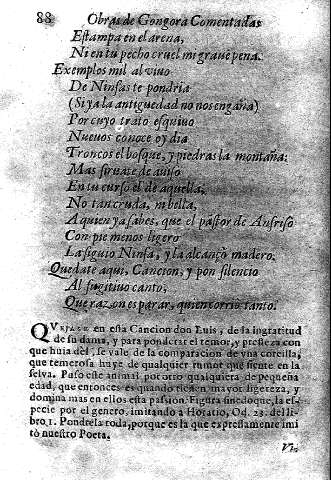 88 Obras de Gongora Comentadas
Estampa en el arena,
Ni en tu pecho cruel mi graue pena.
Exemplos mil al viuo
De Ninfas te pondria
(Si ya la antiguedad no nos engaña)
Por cuyo trato esquiuo
Nueuos conoce oy dia
Troncos el bosque, y piedras la montaña:
Mas siruate de auiso
En tu curso el de aquella,
No tan cruda, ni bella,
A quien ya sabes, que el pastor de Anfriso
Con pie menos ligero
La siguio Ninfa, y la alcançò madero.
Quedate aqui, Cancion, y pon silencio
Al fugitiuo canto,
Que razon es parar, quien corrio tanto.
QVexase en esta Cancion don Luis, de la ingratitud
de su dama, y para ponderar el temor, y presteza con
que huia del, se vale de la comparacion de vna corcilla,
que temerosa huye de qualquier rumor que siente en la
selua. Puso este animal por otro qualquiera de pequeña
edad, que entonces es quando tienen mayor ligereza, y
domina mas en ellos esta passion. Figura sinedoque, la es-
pecie por el genero, imitando a Horatio, Od. 23. del li-
bro, 1. Pondrela toda, porque es la que expressamente imi
tò nuestro Poeta.